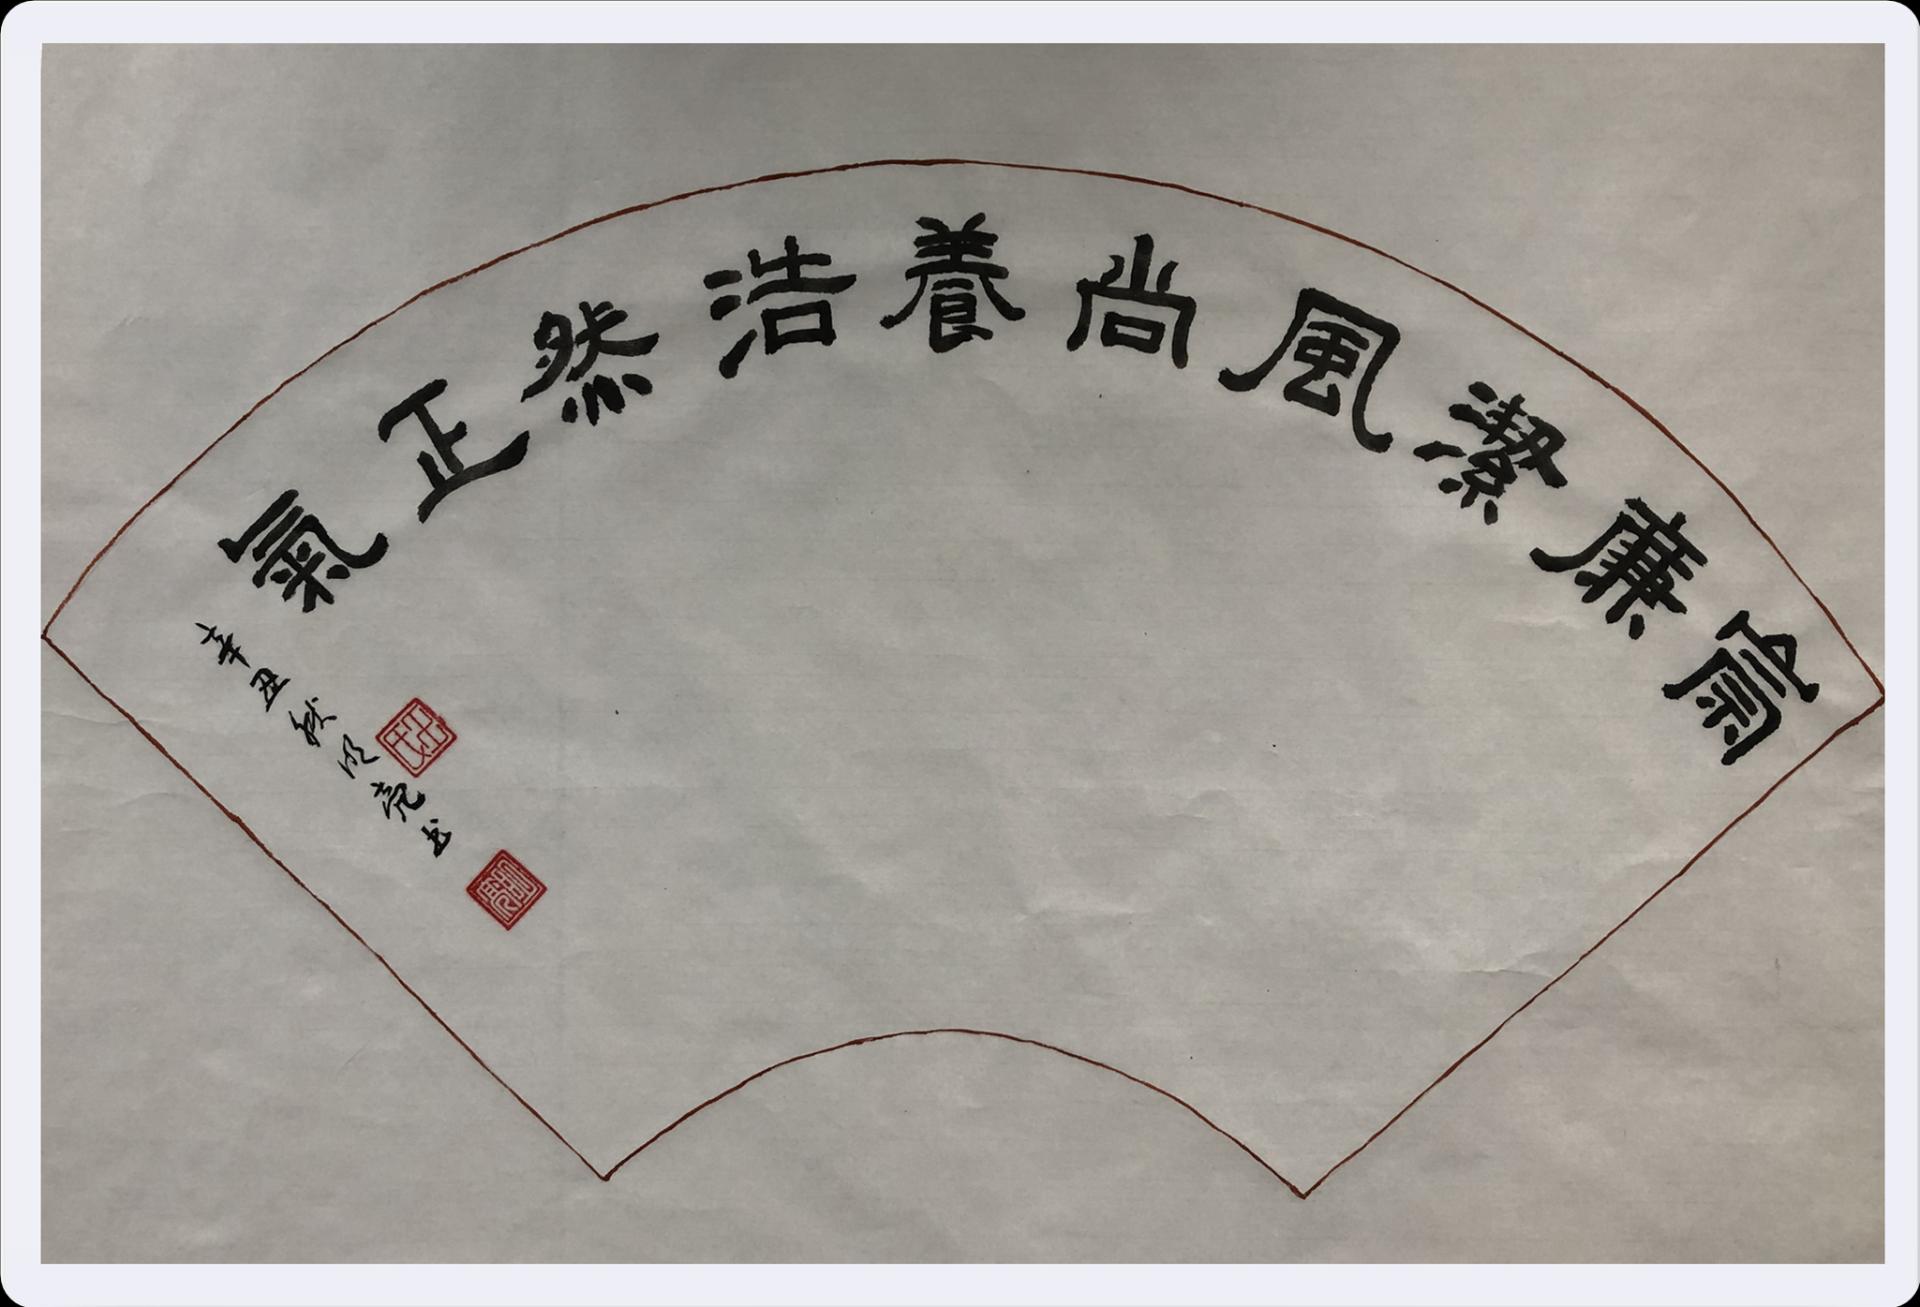 崇廉潔風尚養浩然正氣
辛丑秋明亮书